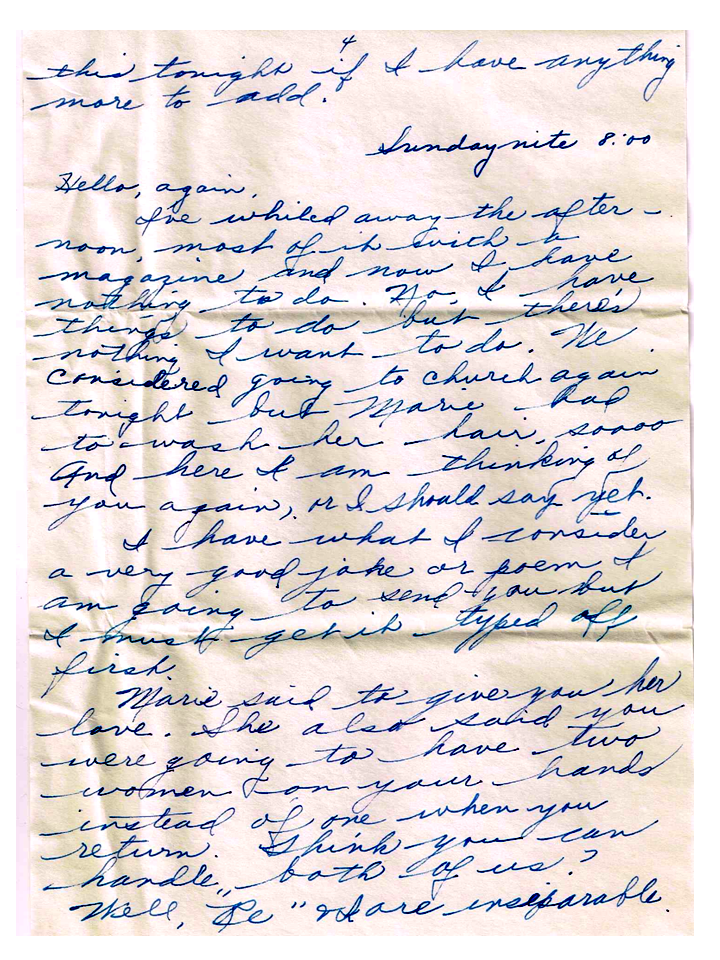 4
this tonight if I have anything
more to add.
Sunday nite 8:00
Hello, again,
I've whiled away the after-
noon, most of it with a
magazine and now I have
nothing to do. No, I have
things to do but there's
nothing I want to do. We
considered going to church again
tonight but Marie had
to wash her hair, soooo
And here I am thinking of
you again, or I should say yet.
I have what I consider
a very good joke or poem I
am going to send you but
I must get it typed off
first.
Marie said to give you her
love. She also said you
were going to have two
women on your hands
instead of one when you
return. Think you can
handle both of us?
Well, "Re" & I are inseparable.